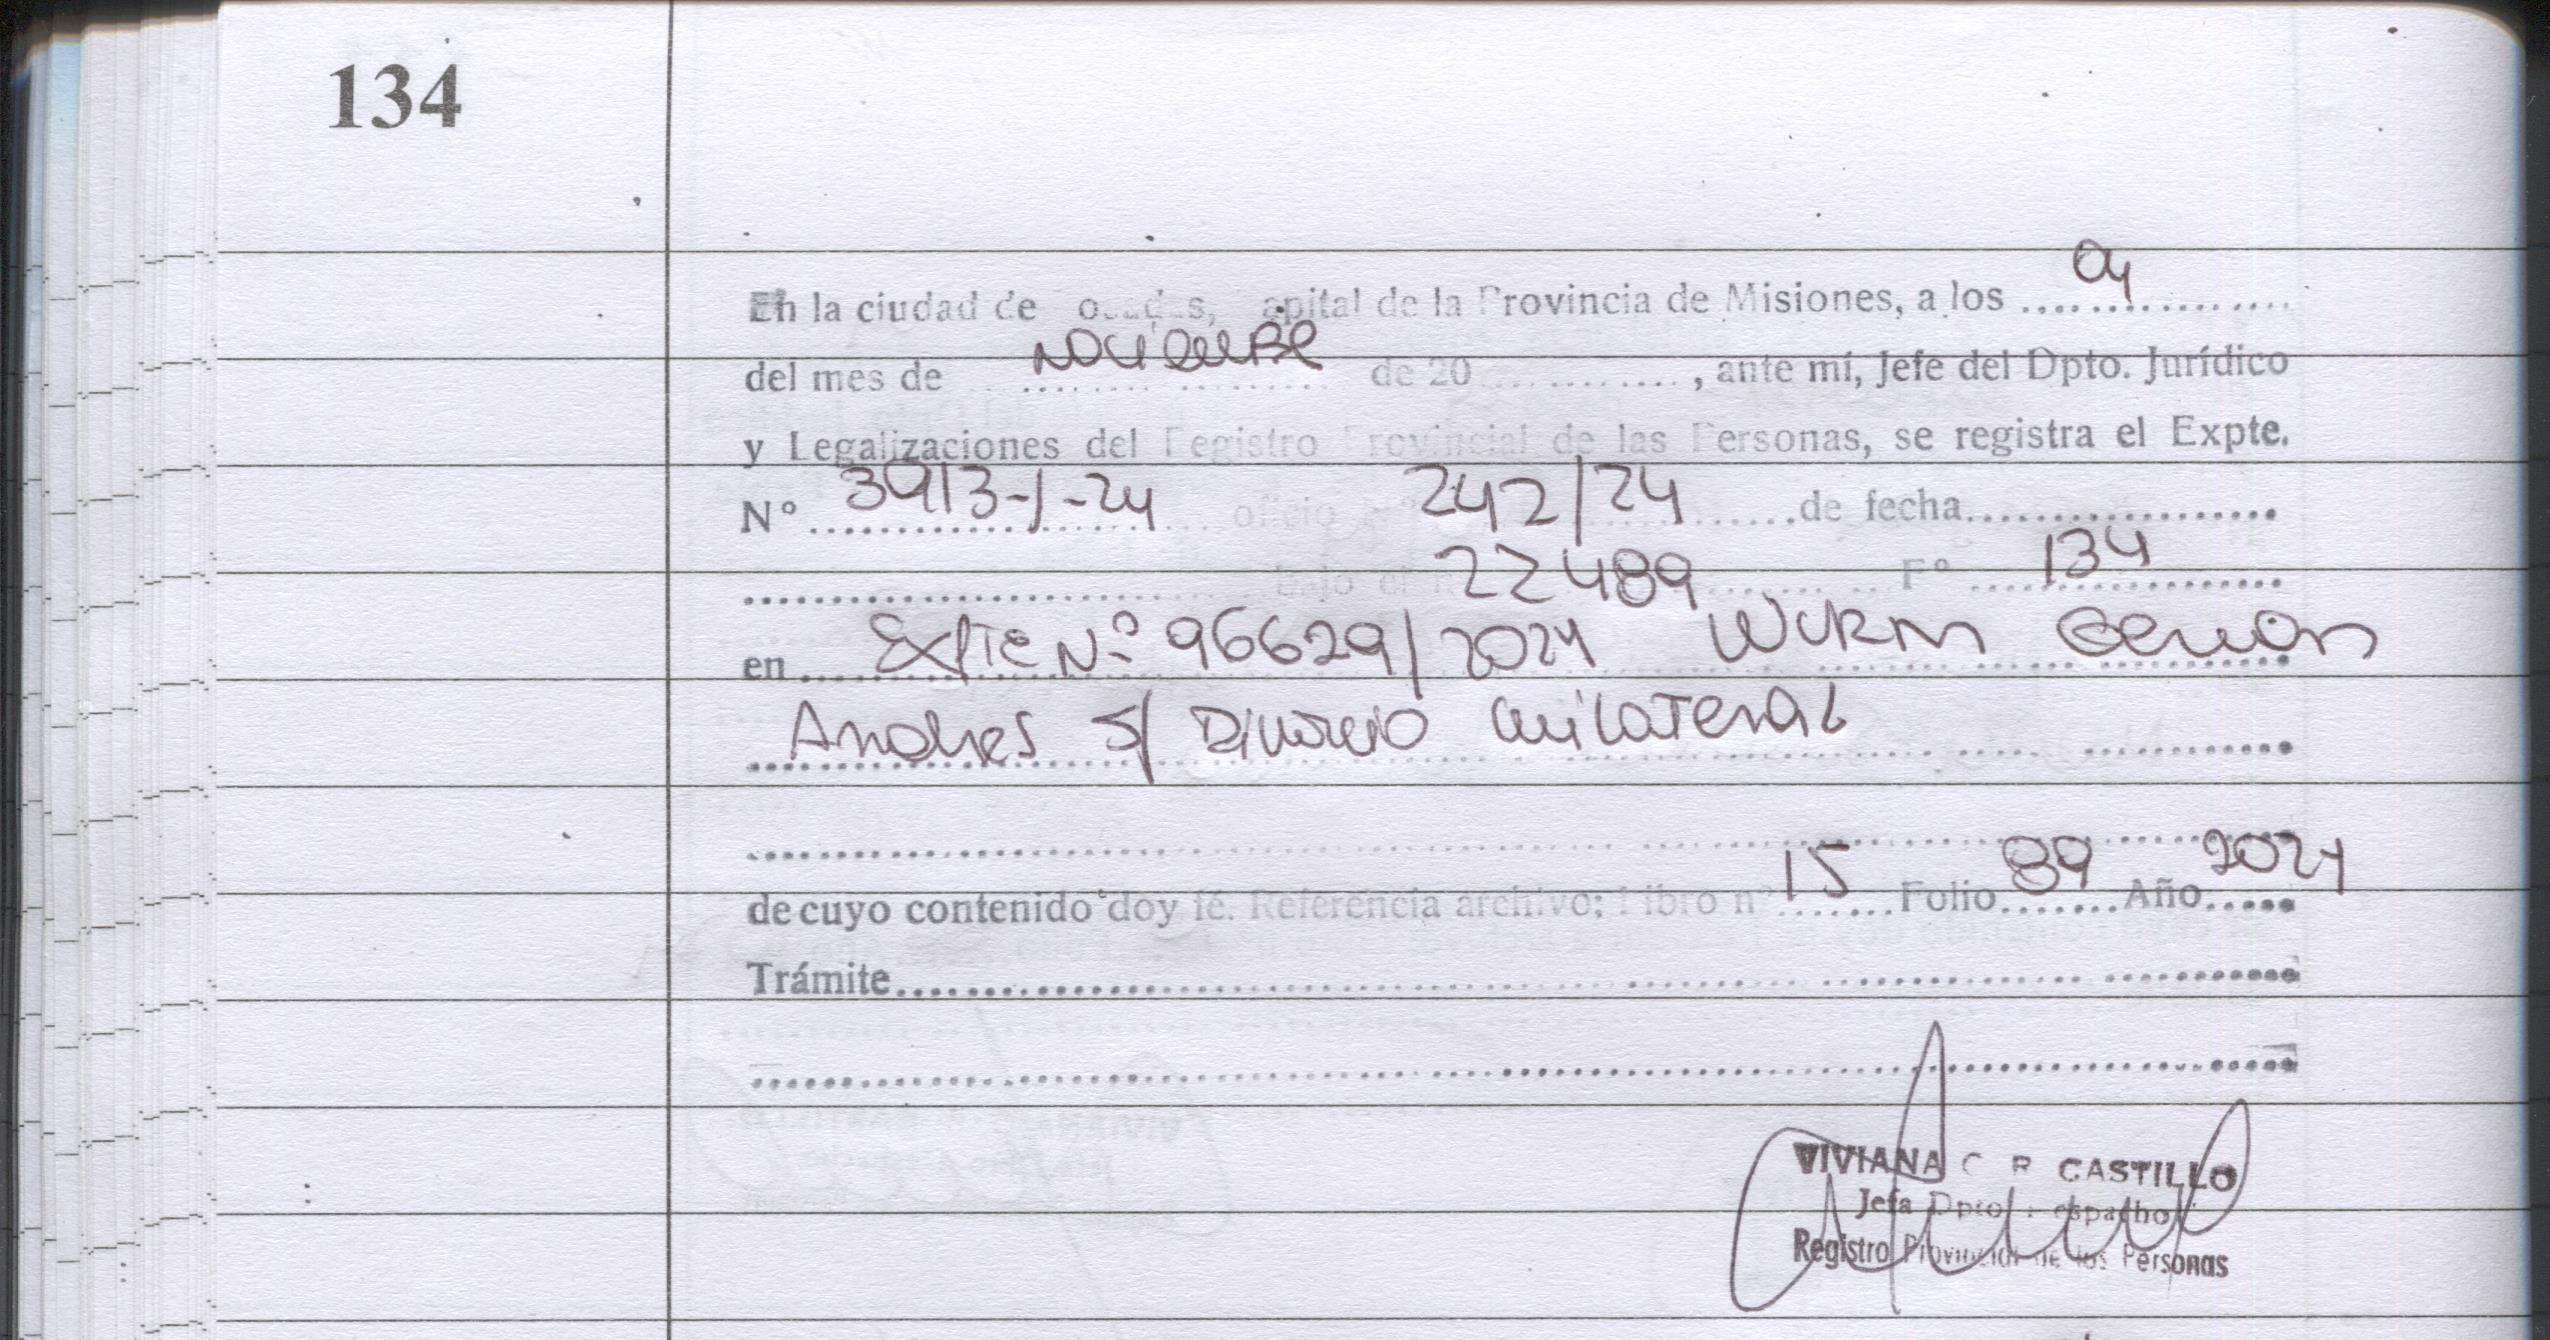 134
En la ciudad de osadas, apital de la Provincia de Misiones, a los 04
del mes de Noviembre de 20 ............, ante mí, Jefe del Dpto. Jurídico
y Legalizaciones del Registro Provincial de las Personas, se registra el Expte.
N° 3913-J-24 oficio n° 242/24 de fecha
bajo el n° 22489 F° 134
en Expte N° 96629/2024 Wurm German
Andres S/ Divorcio unilateral
de cuyo contenido doy fé. Referencia archivo: Libro n° 15 Folio 89 Año 2024
Trámite
VIVIANA C. R. CASTILLO
Jefa Dpto Despacho
Registro Provincial de las Personas